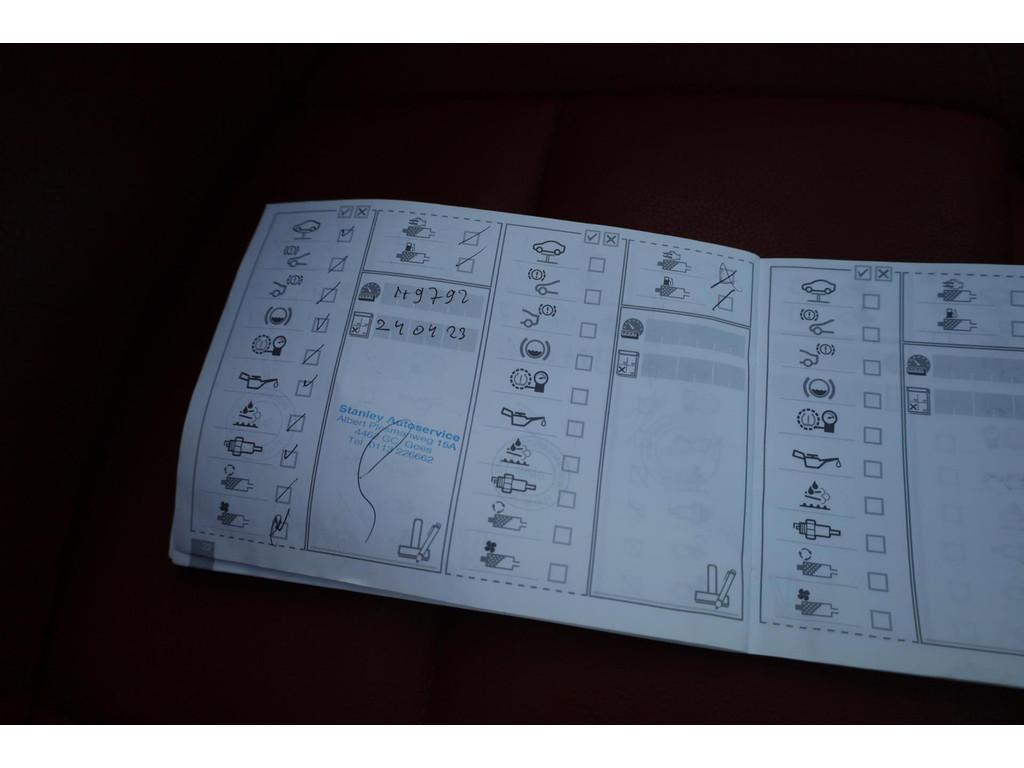 149792
24 04 23
Stanley Autoservice
Albert Plesmanweg 15A
GC Goes
Tel. 0113 226662